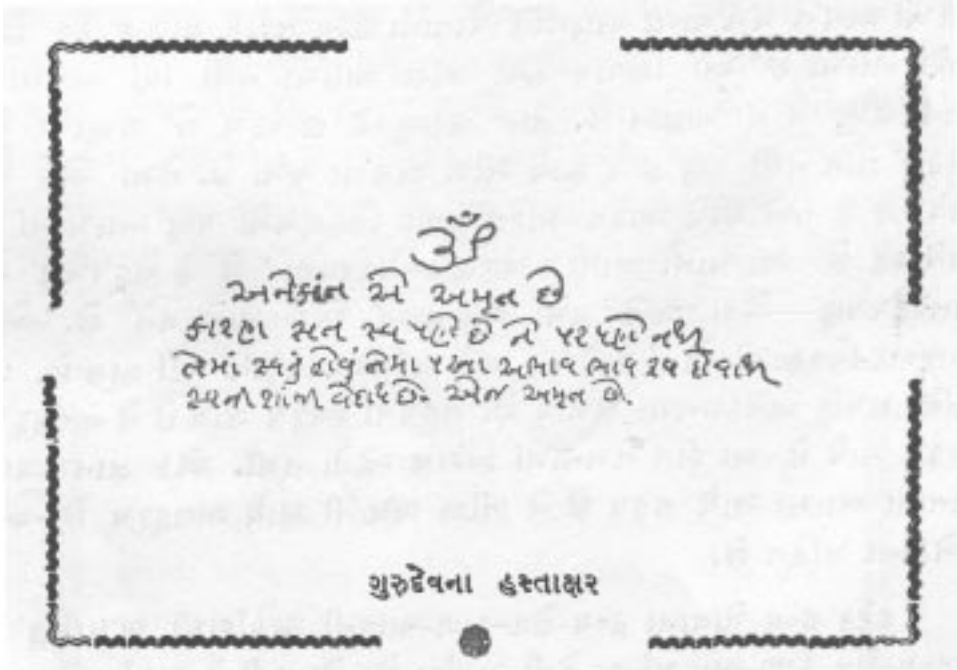 ૐ
અનેકાંત એ અમૃત છે
કારણ સત સ્વ પણે છે ને પરપણે નથી
તેમાં સ્વનું હોવું તેમાં પરના અભાવ ભાવ રૂપ હોવાથી
સ્વની શાંતી વેદાય છે. એજ અમૃત છે.
ગુરુદેવના હસ્તાક્ષર